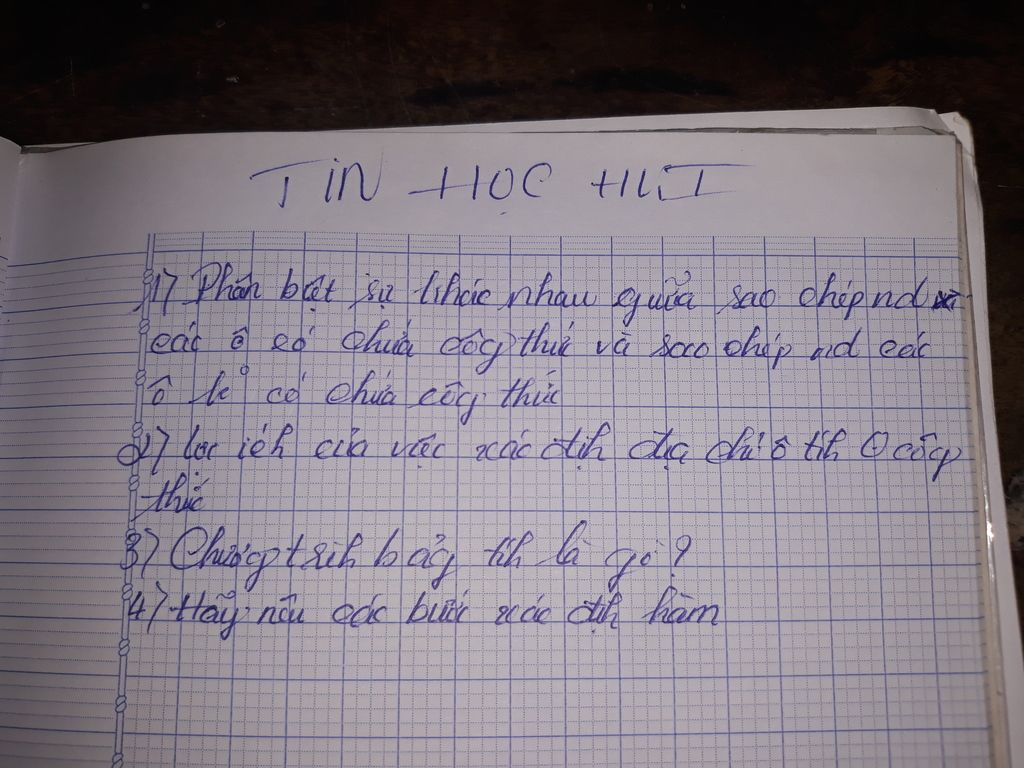 TIN HỌC HKI
1) Phân biệt sự khác nhau giữa sao chép nd
các ô có chứa côg thức và sao chép nd các
ô k° có chứa côg thức
2) lợi ích của việc xác địh địa chỉ ô tíh côg
thức
3) Chươg trìh bảg tíh là gì?
4) Hãy nêu các bước xác địh hàm